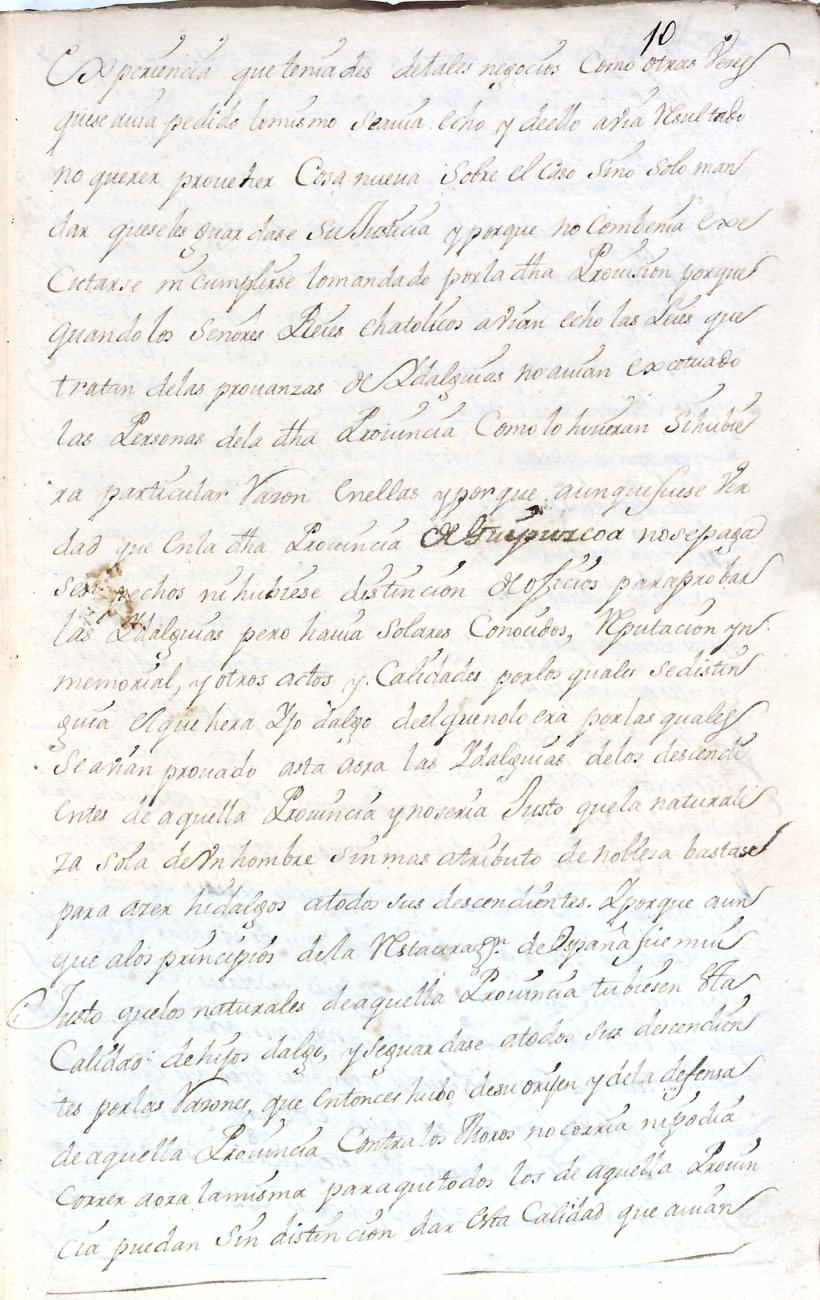 10
Experiencia que teniades de tales negocios Como otras Veces
que se auia pedido lo mismo Se auia echo y de ello avia Resultado
no querer proueher Cosa nueua Sobre el Caso Sino Solo man
dar que se les guardase Su Justicia y porque no Combenia Exe
Cutarse ni Cumplirse lo mandado por la dha Prouision porque
quando los Señores Reies Chatolicos avian echo las Leies que
tratan de las prouanzas de Ydalguias no auian Excetuado
las Personas de la dha Prouincia Como lo hicieran Si hubie
ra particular Razon En ellas y porque aunque fuese Ver
dad que En la dha Prouincia de Guipuzcoa no se pagasen
pechos ni hubiese distincion de officios para probar
las Ydalguias pero hauia Solares Conocidos, Reputacion yn
memorial, y otros actos y Calidades por los quales se distin
guia el que hera Yjo dalgo de el que no lo era por las quales
Se avian prouado asta aora las Ydalguias de los descendi
entes de aquella Prouincia y no seria Justo que la naturale
za sola de Vn hombre Sin mas atributo de nobleza bastase
para azer hidalgos a todos sus descendientes. Y porque aun
que a los principios de la Restauraçon. de España fue mui
Justo que los naturales de aquella Prouincia tubiesen Esta
Calidad de hijos dalgo, y se guardase a todos sus descendien
tes por las Razones, que Entonces hubo de su orijen y de la defensa
de aquella Prouincia Contra los Moros no corria ni podia
Correr aora la misma para que todos los de aquella Prouin
cia puedan Sin distincion dar Esta Calidad que auian